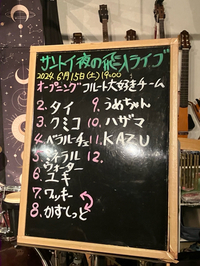 サントイ夜の飛入ライブ
2024. 6月15日(土)19:00
オープニング フルート大好きチーム
2. タイ
3. クミコ
4. ベラルーチェ
5. ミチラル
ウォーター
6. ユキ
7. ワッキー
8. かすしっと
9. うめちゃん
10. ハザマ
11. KAZU
12.